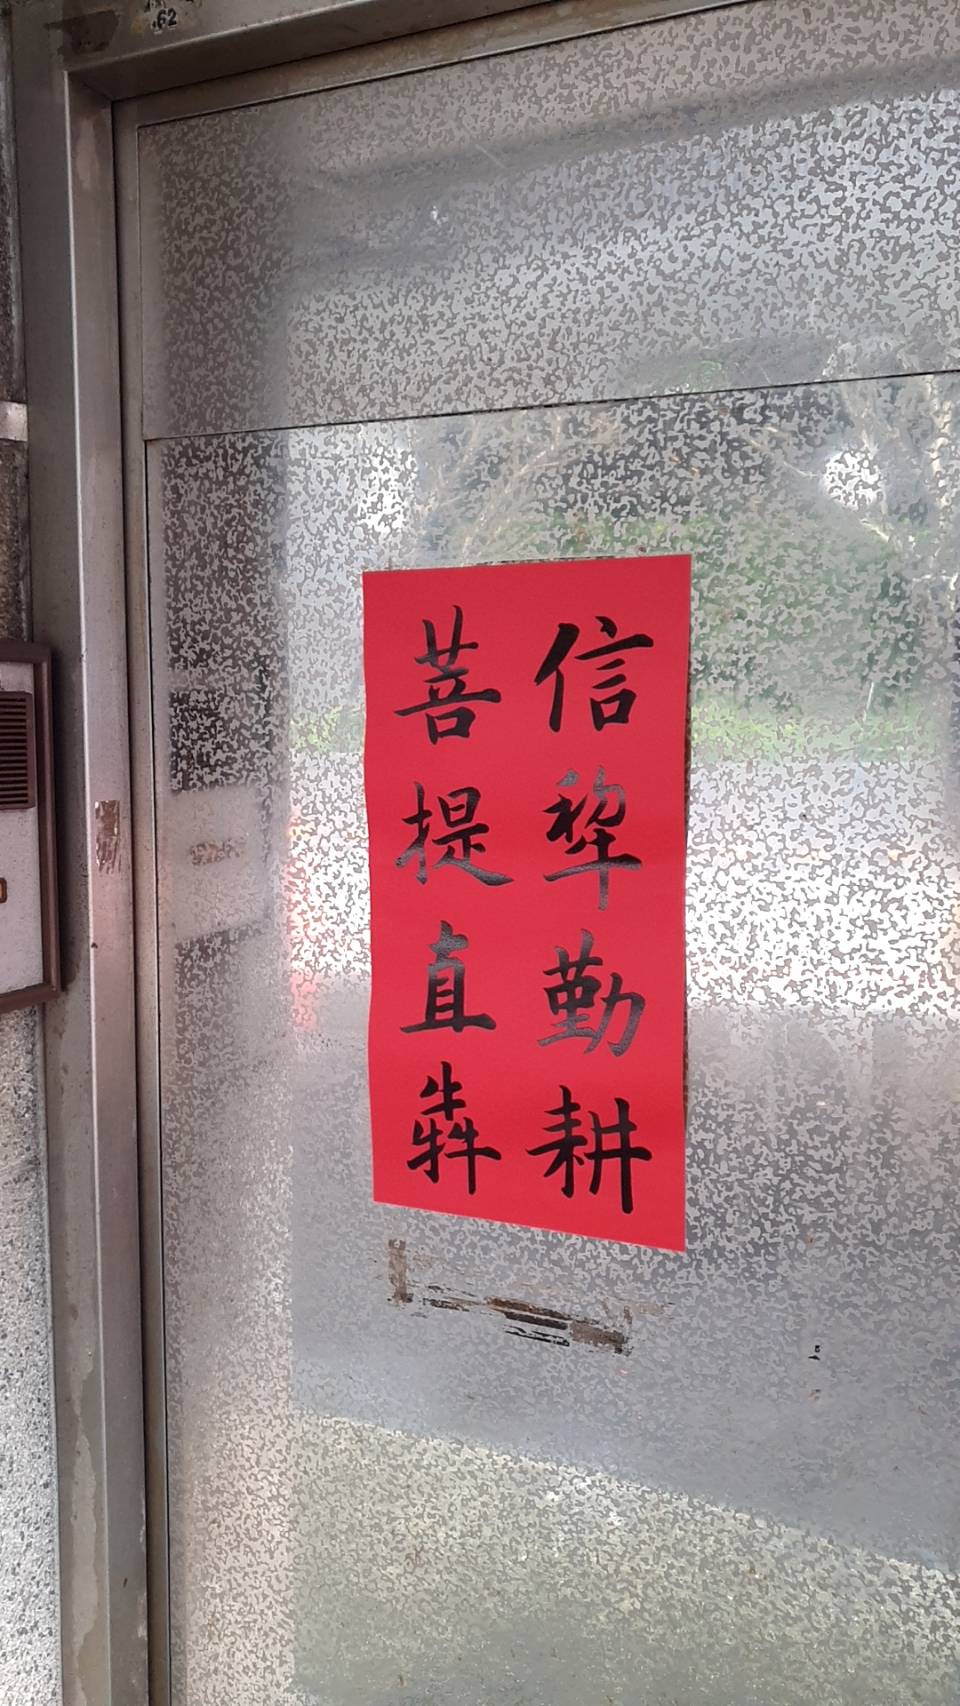 信犂勤耕
菩提直犇
62